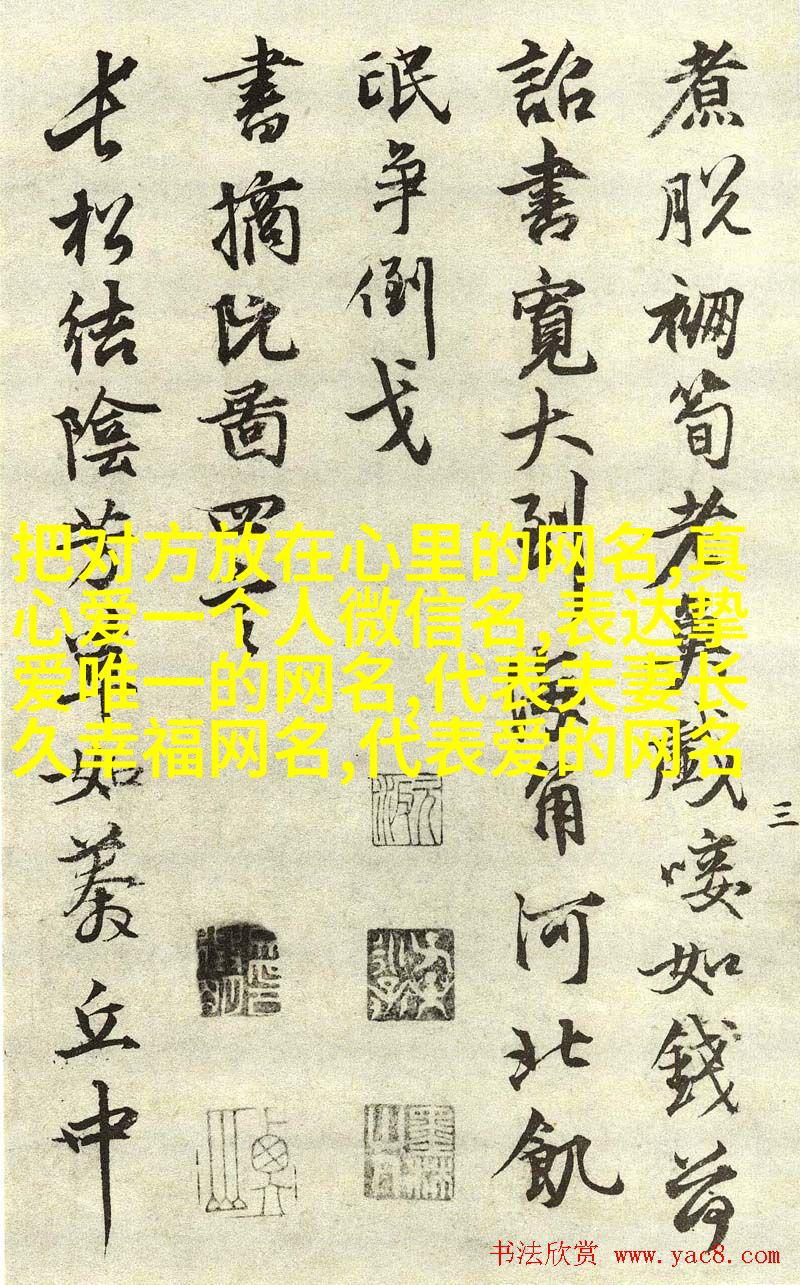 煮脱筍老魚戲唼如錢荷
詔書寬大到角河北飢
氓争倒戈
書摘阮圖
長松結陰芳草如綦丘中
三
把对方放在心里的网名,真
心爱一个人微信名,表达挚
爱唯一的网名,代表夫妻长
久幸福网名,代表爱的网名
书法欣赏 www.yac8.com